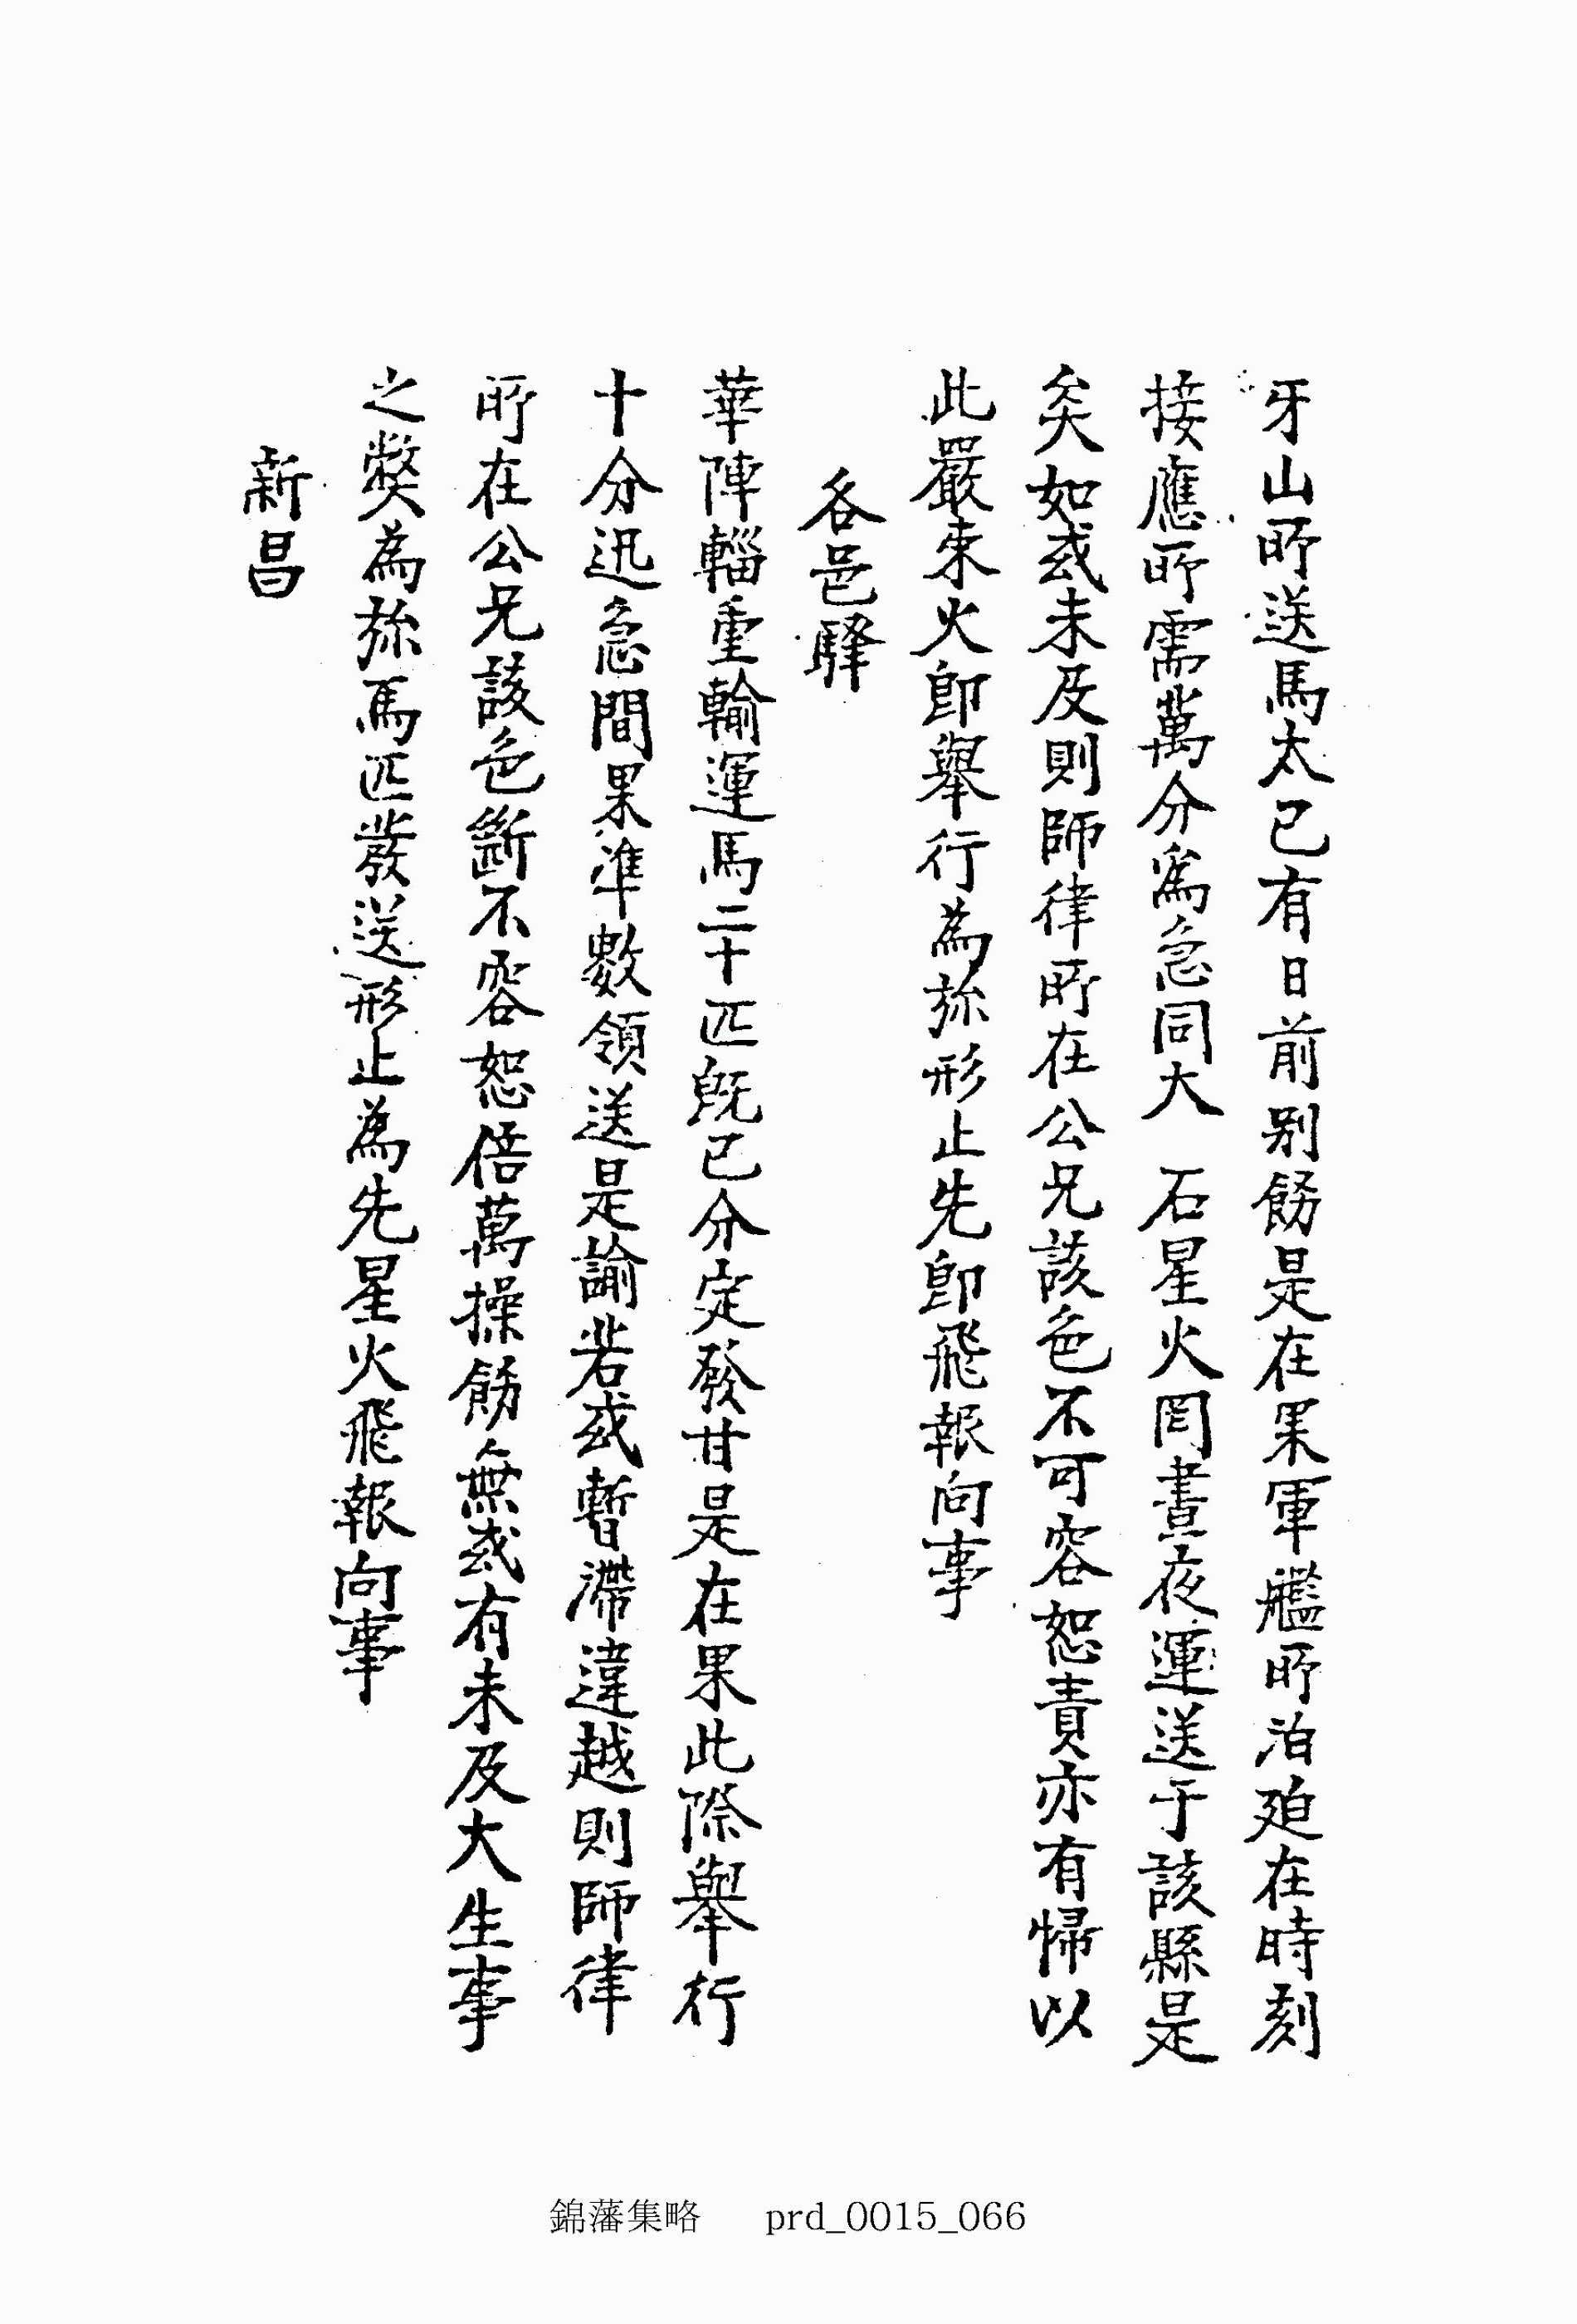 牙山所送馬太已有日前別飭是在果軍艦所泊迫在時刻
接應所需萬分爲急同太 石星火罔晝夜運送于該縣是
矣如或未及則師律所在公兄該色不可容恕責亦有歸以
此嚴束火卽擧行爲旀形止先卽飛報向事
各邑驛
華陣輜重輸運馬二十匹旣已分定發甘是在果此際擧行
十分迅急間果準數領送是諭若或暫滯違越則師律
所在公兄該色斷不容恕倍萬操飭無或有未及大生事
之獘爲旀馬匹發送形止爲先星火飛報向事
新昌
錦藩集略 prd_0015_066